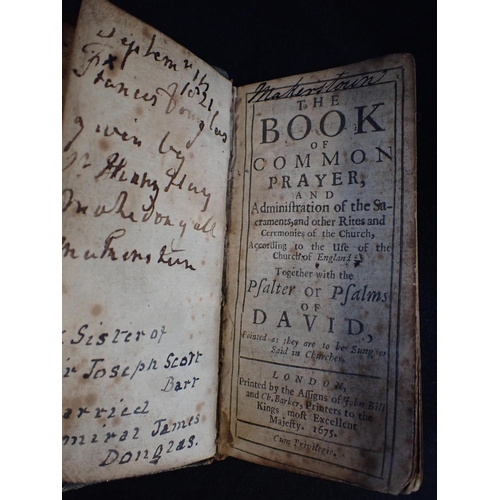 Septem
Francis Douglas
given by
Sr Henry Hay
Makdougall
Makerstoun
Sister of
Sir Joseph Scott
Bart
Married
Admiral James
Douglas.
Makerstoun
THE
BOOK
OF
COMMON
PRAYER,
AND
Administration of the Sa-
craments, and other Rites and
Ceremonies of the Church,
According to the Use of the
Church of England;
Together with the
Psalter or Psalms
OF
DAVID,
Pointed as they are to be Sung or
Said in Churches.
LONDON,
Printed by the Assigns of John Bill
and Ch. Barker, Printers to the
Kings most Excellent
Majesty. 1675.
Cum Privilegio.